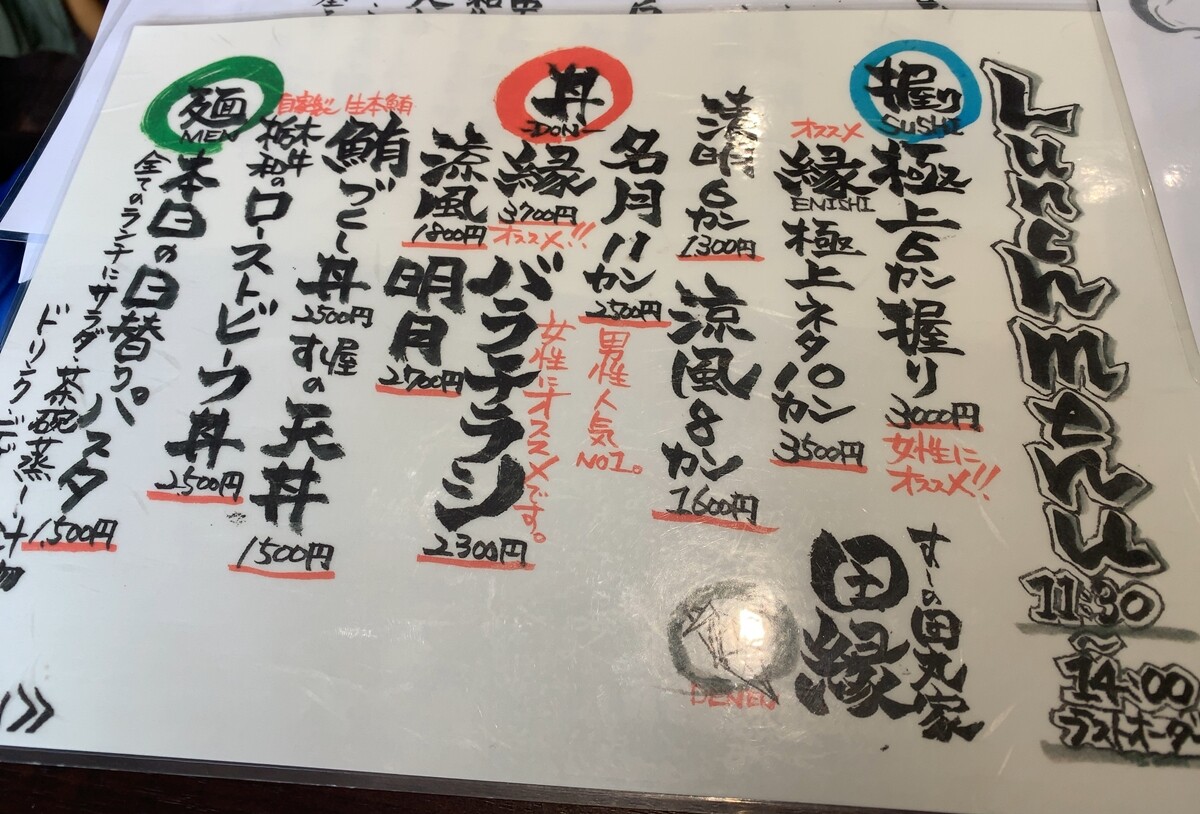 Lunch menu
11:30
〜
14:00
ラストオーダー
握り
SUSHI
極上6カン握り
3000円
女性に
オススメ!!
オススメ
縁
ENISHI
極上ネタ10カン
3500円
清明6カン
1300円
涼風8カン
1600円
名月11カン
2500円
男性人気
NO1。
すしの田丸家
田縁
DENEN
丼
-DON-
縁
3700円
オススメ!!
バラチラシ
2300円
女性にオススメです。
涼風
1800円
明月
2700円
生本鮪
鮪づくし丼
2500円
すし屋の天丼
1500円
自家製
栃木和牛のローストビーフ丼
2500円
麺
MEN
本日の日替りパスタ
1,500円
全てのランチにサラダ・茶碗蒸し
ドリンク